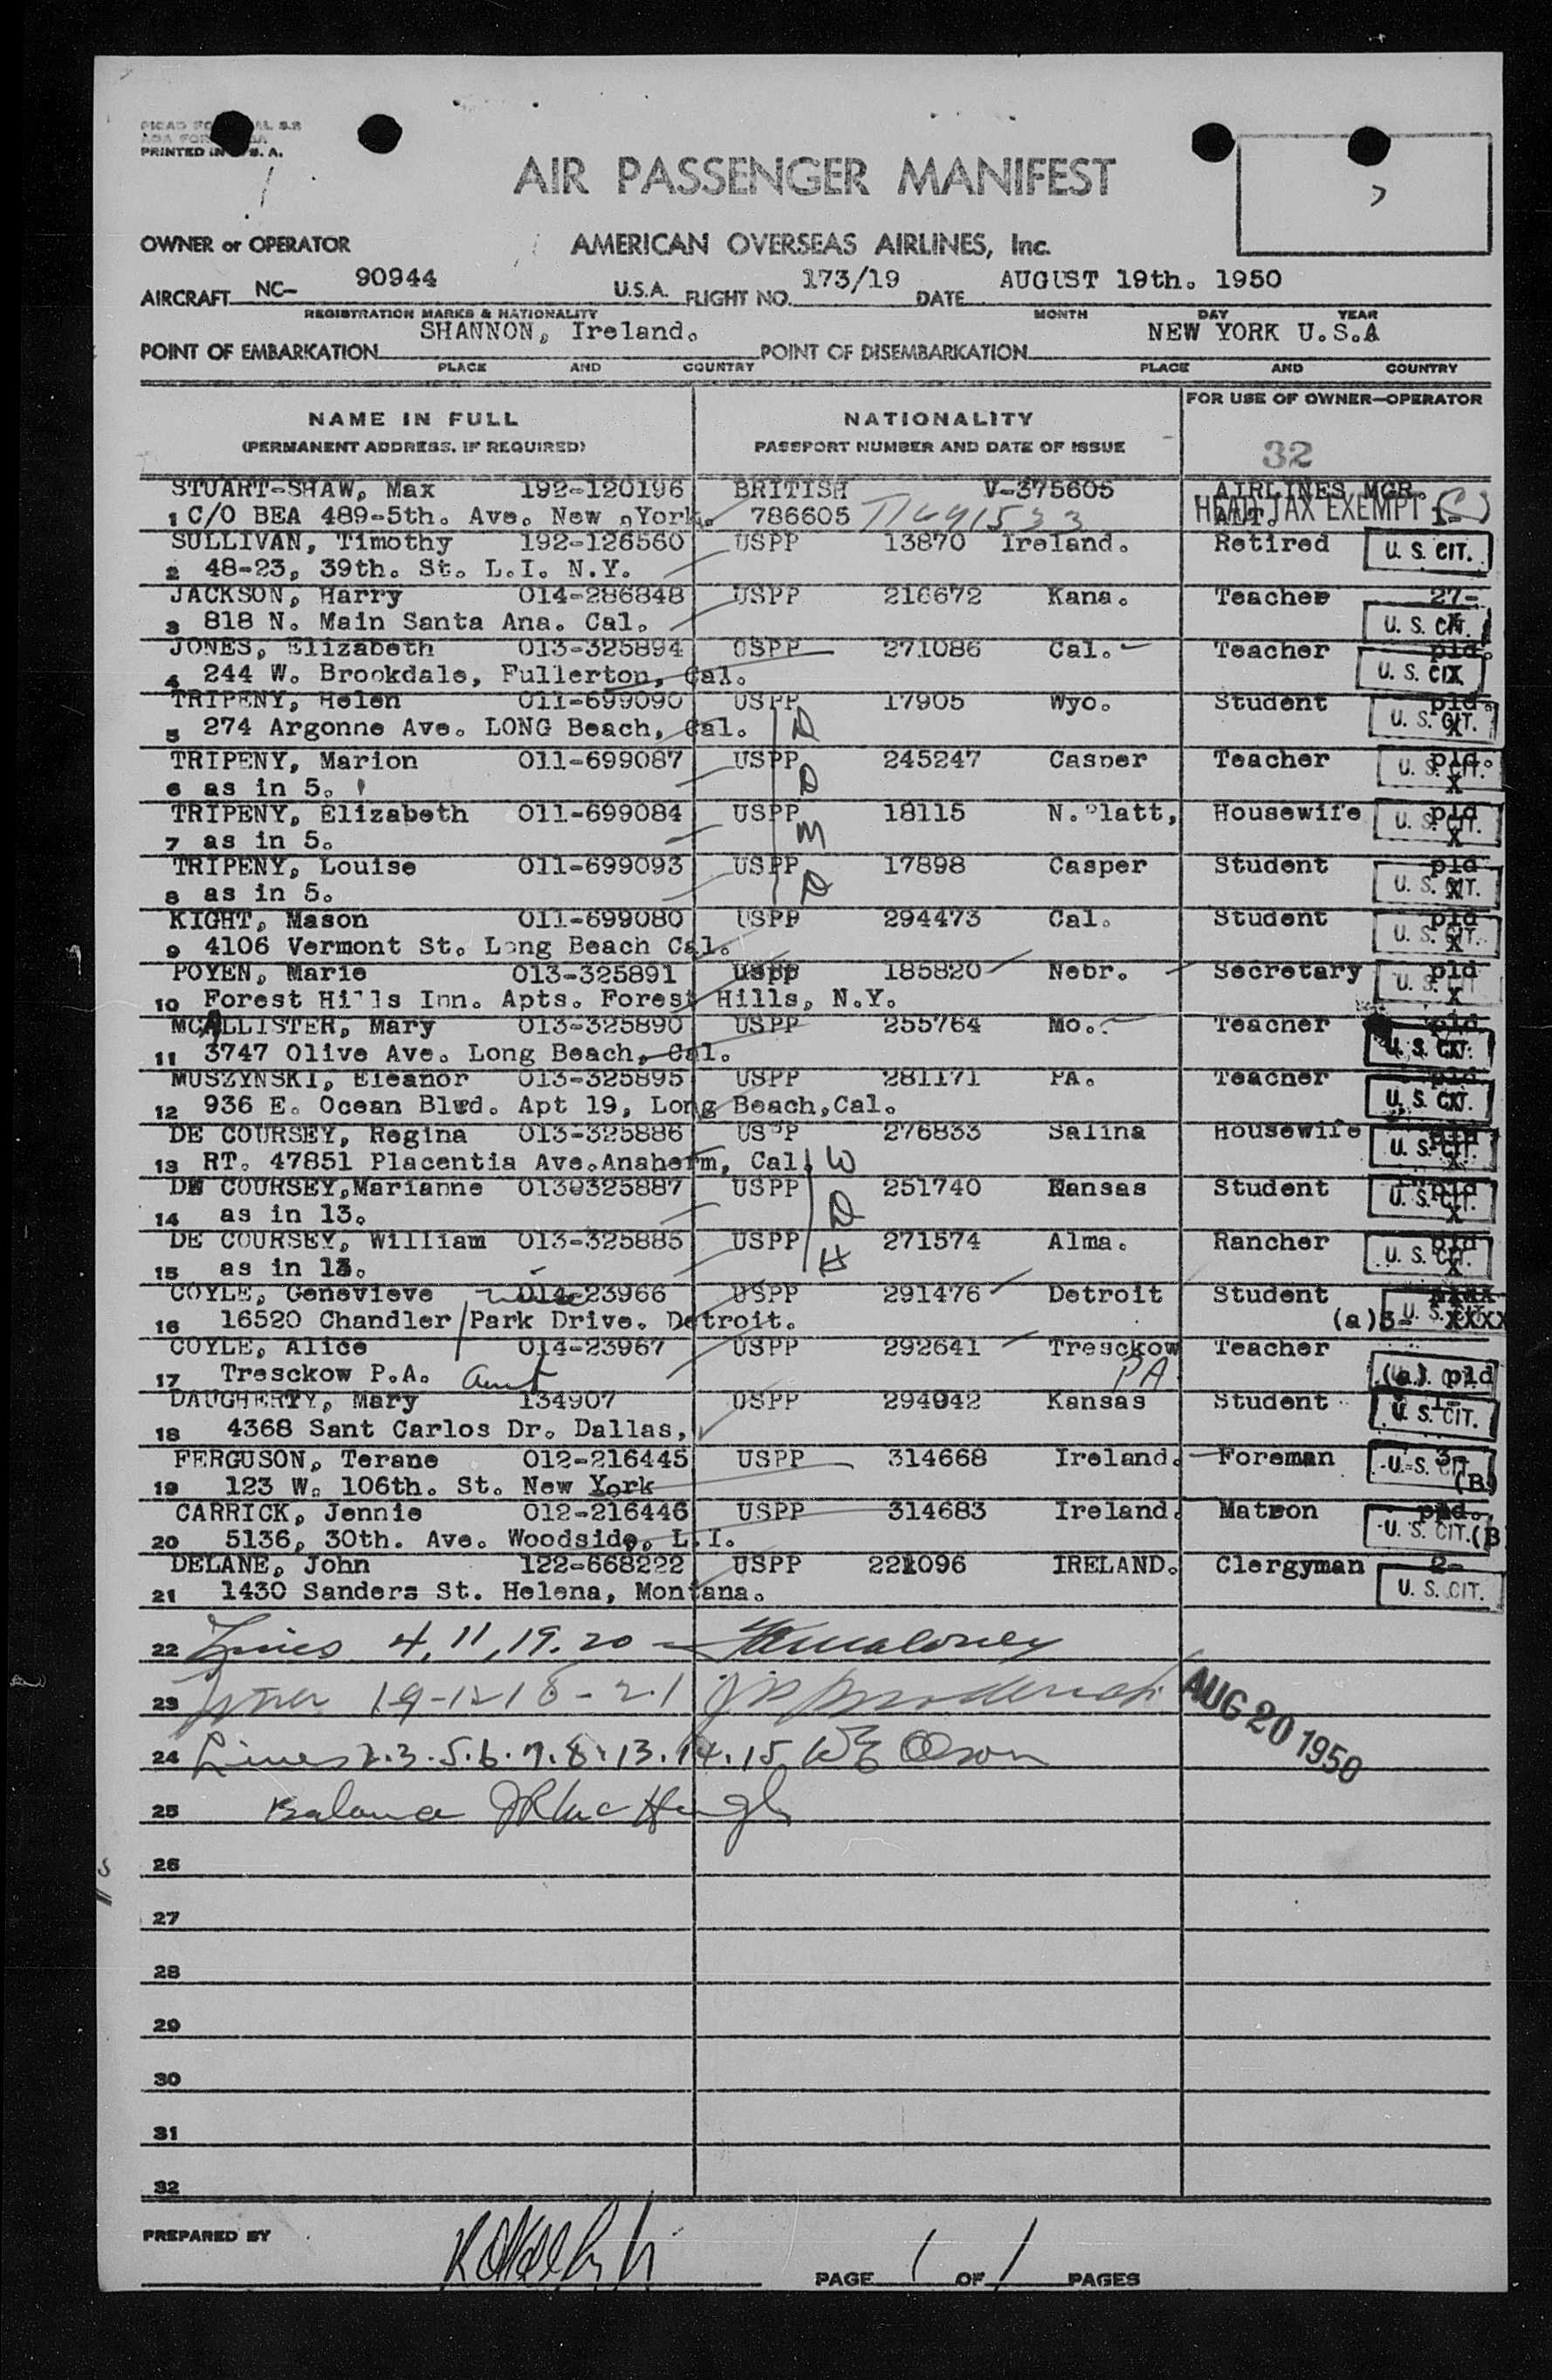 PRINTED IN U. S. A.
AIR PASSENGER MANIFEST
OWNER or OPERATOR AMERICAN OVERSEAS AIRLINES, Inc.
AIRCRAFT NC- 90944 U.S.A. FLIGHT NO. 173/19 DATE AUGUST 19th. 1950
REGISTRATION MARKS & NATIONALITY MONTH DAY YEAR
POINT OF EMBARKATION SHANNON, Ireland. POINT OF DISEMBARKATION NEW YORK U.S.A
PLACE AND COUNTRY PLACE AND COUNTRY
NAME IN FULL NATIONALITY FOR USE OF OWNER—OPERATOR
(PERMANENT ADDRESS, IF REQUIRED) PASSPORT NUMBER AND DATE OF ISSUE 32
STUART-SHAW, Max 192-120196 BRITISH V-375605 AIRLINES MGR.
1 C/O BEA 489-5th. Ave. New York. 786605 HEAD TAX EXEMPT
SULLIVAN, Timothy 192-126560 USPP 13870 Ireland. Retired U. S. CIT.
2 48-23, 39th. St. L.I. N.Y.
JACKSON, Harry 014-286848 USPP 216672 Kans. Teacher 27-
3 818 N. Main Santa Ana. Cal. U. S. CIT.
JONES, Elizabeth 013-325894 USPP 271086 Cal. Teacher pld.
4 244 W. Brookdale, Fullerton, Cal. U. S. CIT.
TRIPENY, Helen 011-699090 USPP 17905 Wyo. Student pld.
5 274 Argonne Ave. LONG Beach, Cal. D U. S. CIT.
TRIPENY, Marion 011-699087 USPP 245247 Casper Teacher pld.
6 as in 5. D U. S. CIT.
TRIPENY, Elizabeth 011-699084 USPP 18115 N.Platt, Housewife pld
7 as in 5. M U. S. CIT.
TRIPENY, Louise 011-699093 USPP 17898 Casper Student pld
8 as in 5. D U. S. CIT.
KIGHT, Mason 011-699080 USPP 294473 Cal. Student pld
9 4106 Vermont St. Long Beach Cal. U. S. CIT.
POYEN, Marie 013-325891 USPP 185820 Nebr. Secretary pld
10 Forest Hills Inn. Apts. Forest Hills, N.Y. U. S. CIT
MCALLISTER, Mary 013-325890 USPP 255764 Mo. Teacher pld
11 3747 Olive Ave. Long Beach, Cal. U. S. CIT.
MUSZYNSKI, Eleanor 013-325895 USPP 281171 PA. Teacher pld
12 936 E. Ocean Blvd. Apt 19, Long Beach,Cal. U. S. CIT.
DE COURSEY, Regina 013-325886 USPP 276833 Salina Housewife pld
13 RT. 47851 Placentia Ave.Anaheim, Cal. W U. S. CIT.
DE COURSEY,Marianne 0130325887 USPP 251740 Kansas Student pld
14 as in 13. D U. S. CIT.
DE COURSEY, William 013-325885 USPP 271574 Alma. Rancher pld
15 as in 13. H U. S. CIT.
COYLE, Genevieve 014-23966 USPP 291476 Detroit Student
16 16520 Chandler Park Drive. Detroit. (a)3- U. S. CIT. XXXX
COYLE, Alice 014-23967 USPP 292641 Tresckow Teacher
17 Tresckow P.A. aunt PA. (a) pld
DAUGHERTY, Mary 134907 USPP 294942 Kansas Student
18 4368 Sant Carlos Dr. Dallas, U. S. CIT.
FERGUSON, Terane 012-216445 USPP 314668 Ireland. Foreman 3-
19 123 W. 106th. St. New York U. S. CIT. (B)
CARRICK, Jennie 012-216446 USPP 314683 Ireland. Matron pld.
20 5136, 30th. Ave. Woodside, L.I. U. S. CIT. (B
DELANE, John 122-668222 USPP 221096 IRELAND. Clergyman 2-
21 1430 Sanders St. Helena, Montana. U. S. CIT.
22 Lines 4, 11, 19. 20
23
24 Lines 2.3.5.6.7.8.13.14.15 WE Olson
AUG 20 1950
25 Balance
26
27
28
29
30
31
32
PREPARED BY
PAGE 1 OF 1 PAGES